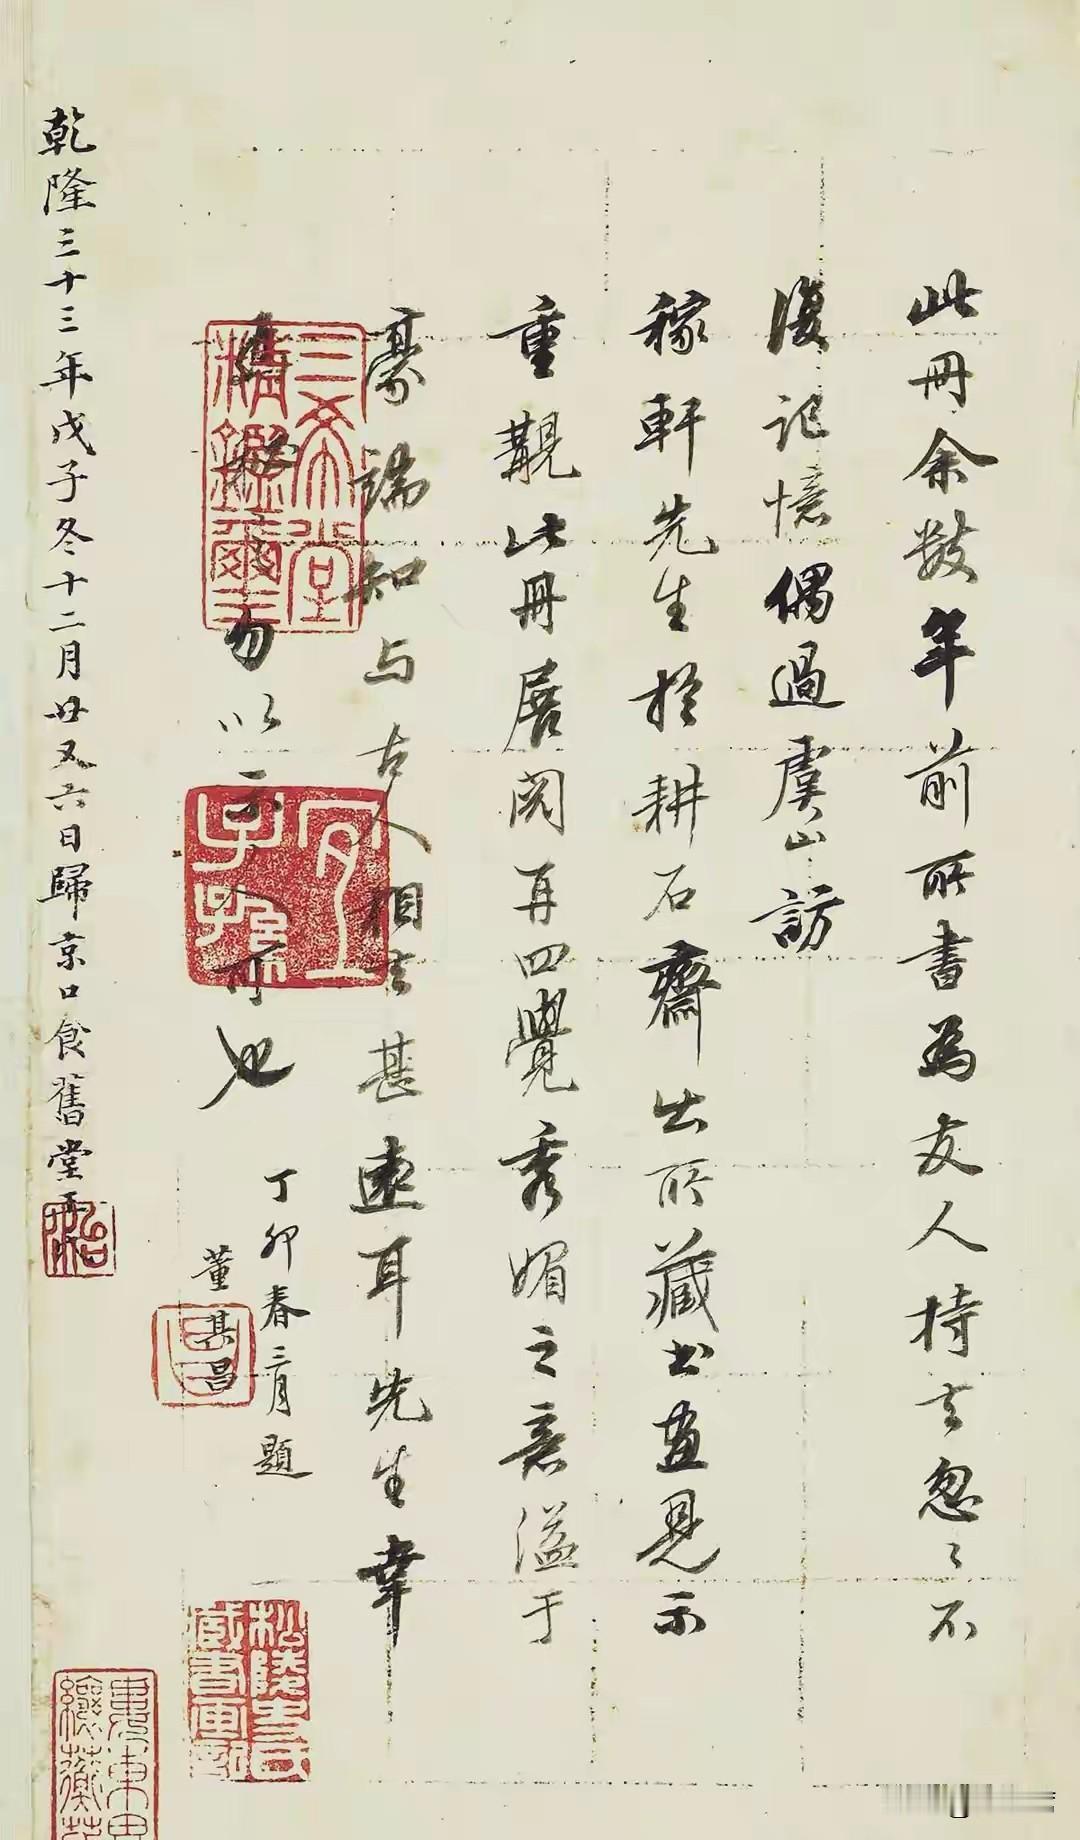 此冊余數年前所書為友人持去忽〻不
復記憶偶過虞山訪
稼軒先生於耕石齋出所藏書畫見示
重觀此冊展閱再四覺秀媚之意溢于
豪端知與古人相去甚遠耳先生幸
勿以示人可也
丁卯春三月題
董其昌
乾隆三十三年戊子冬十二月廿又六日歸京口食舊堂
三希堂
精鑑璽
宜
子孫
松陵史氏
藏書畫記